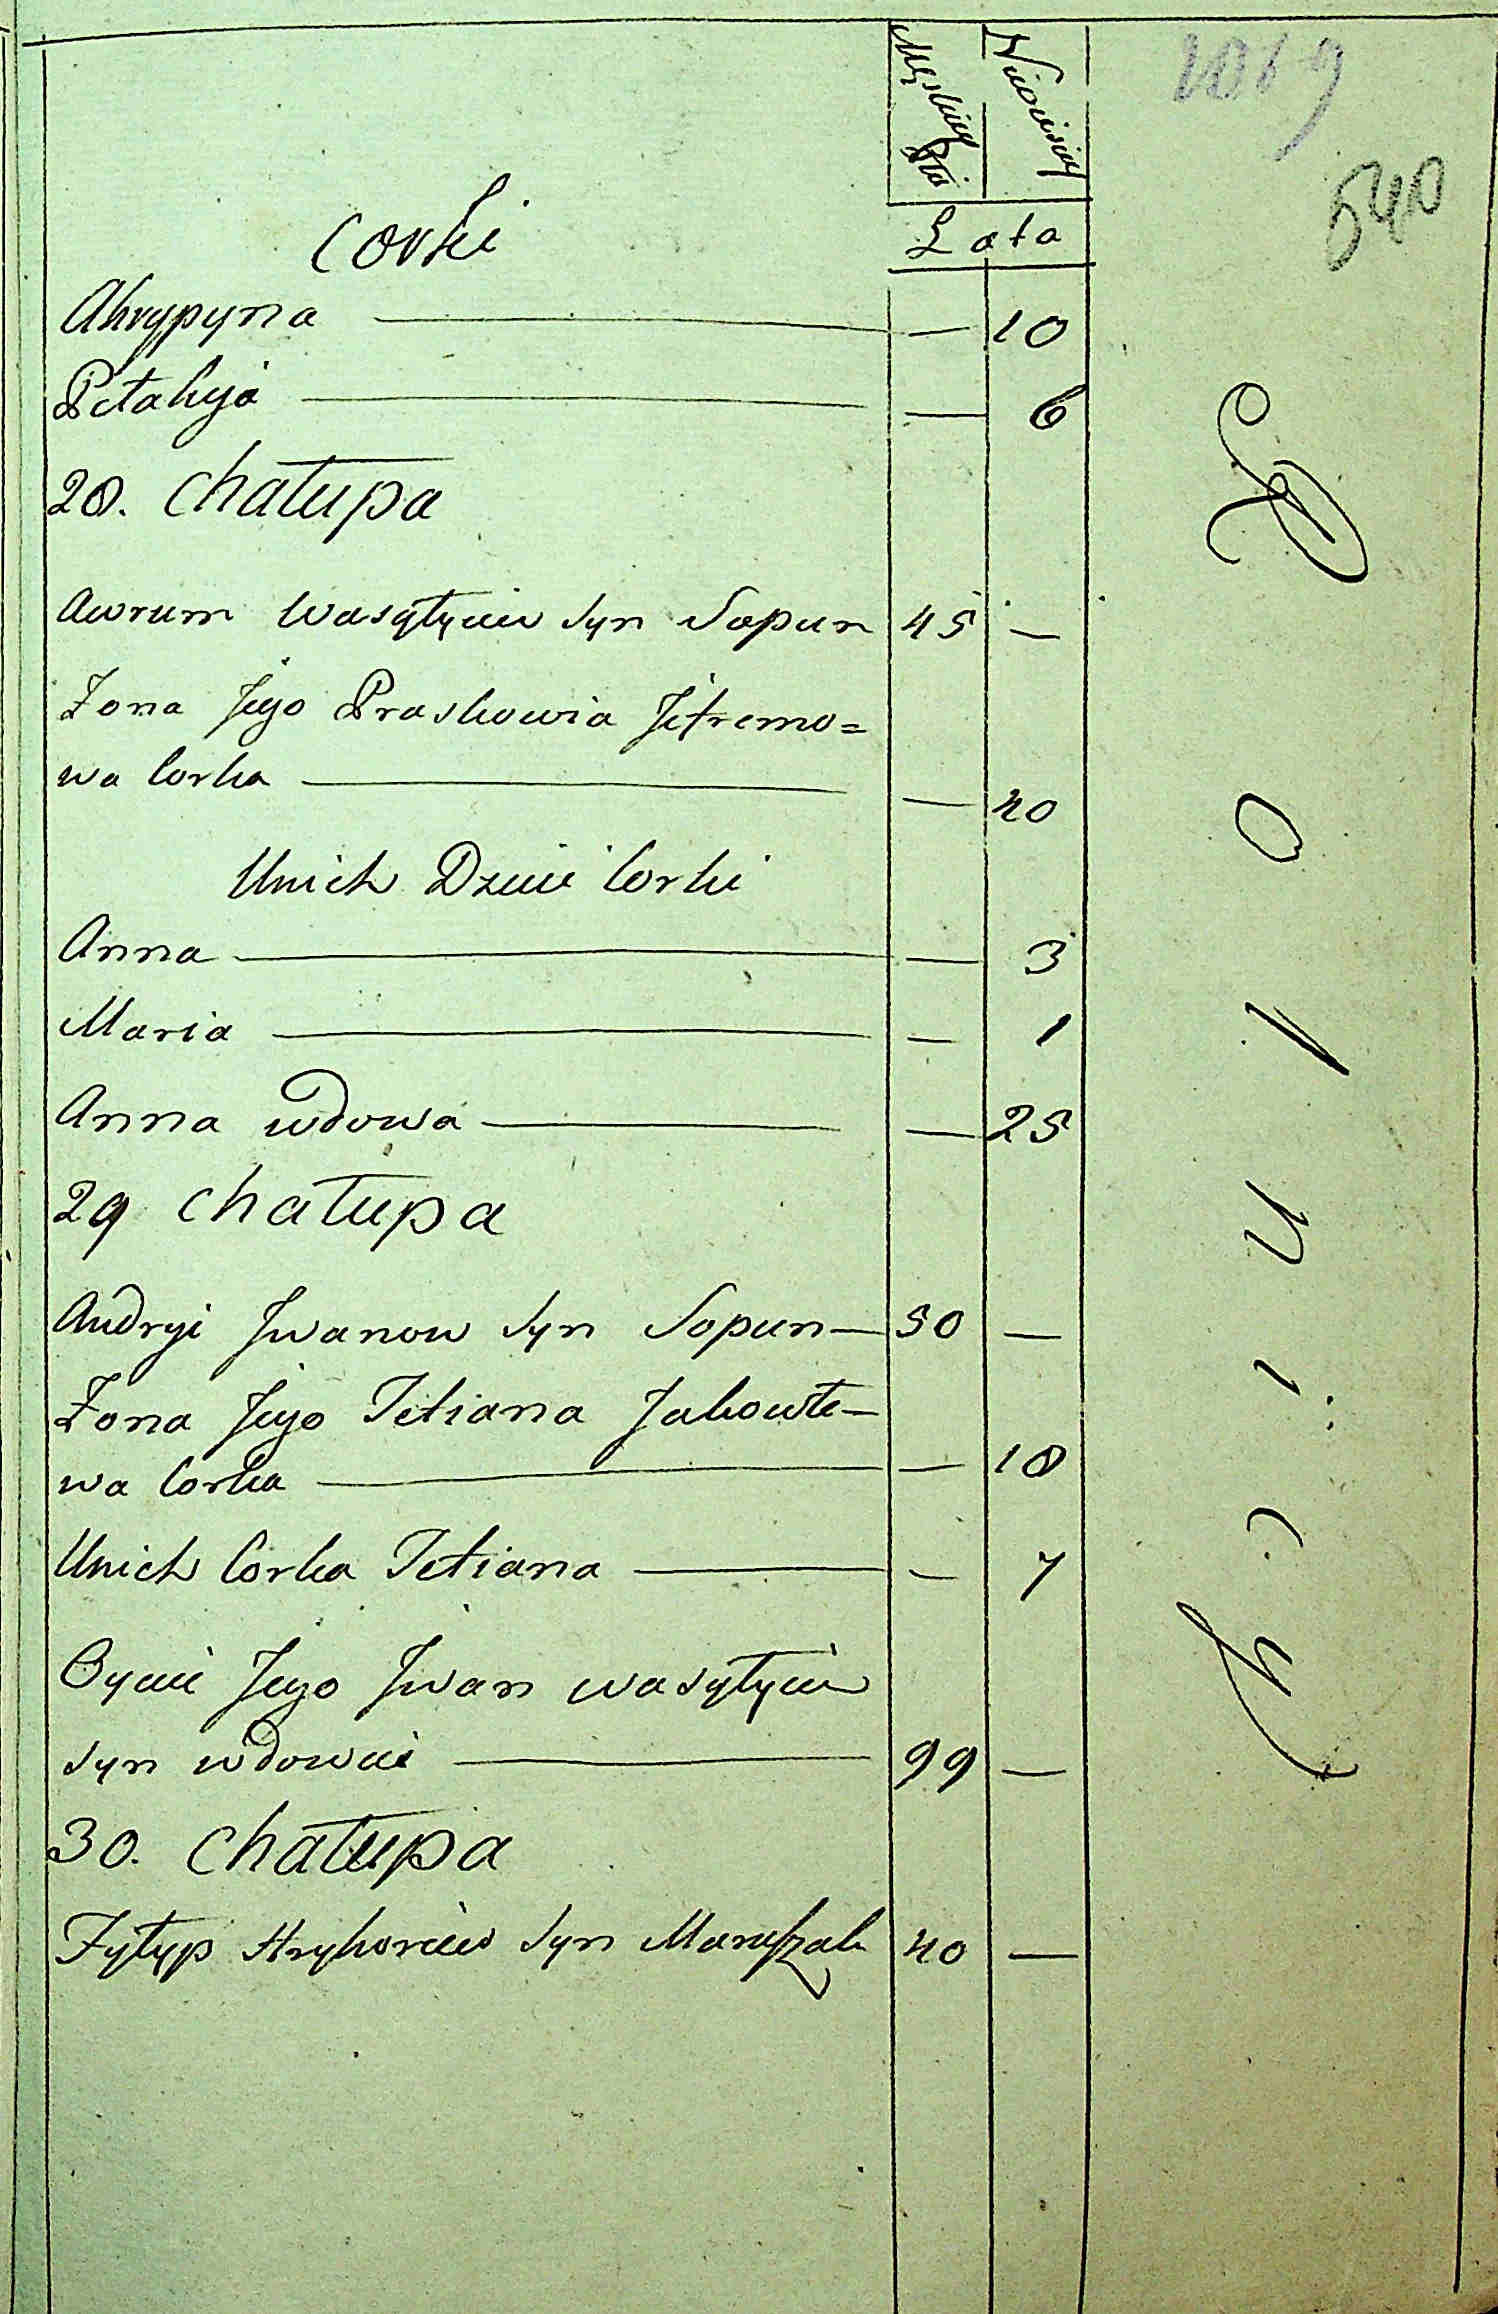 Męskiey Płci
Niewieściey
Lata
1069
540
Corki
Ahrypyna — — 10
Pełahyja — — 6
28. Chałupa
Awrum Wasylyiew Syn Sopun 45 —
Żona Jego Praskowia Jefremo=
wa Corka — — 40
Unich Dzieci Corki
Anna — — 3
Maria — — 1
Anna wdowa — — 25
29 Chałupa
Andryi Jwanow Syn Sopun — 30 —
Żona Jego Tetiana Jakowle—
wa Corka — — 18
Unich Corka Tetiana — — 7
Oyciec Jego Jwan wasyłyiew
Syn wdowiec — 99 —
30. Chałupa
Fyłyp Hryhoriew Syn Marufzak 40 —